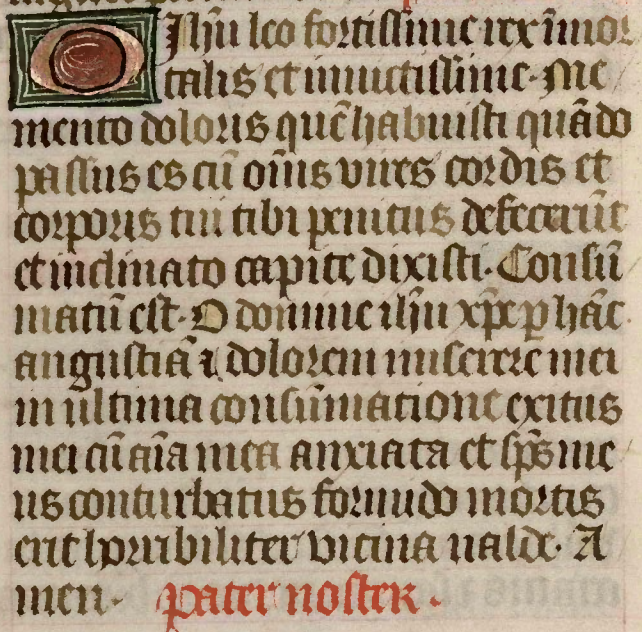 O Jhū leo fortissime rex īmor
talis et inuictissime. Me
mento doloris quē habuisti quādo
passus es cū oīns vires cordis et
corporis tui tibi penitus defecerūt
et inclinato capite dixisti. Consū
matū est. O domine ihū xp̄e ꝑ hāc
angustiā ⁊ dolorem miserere mei
in ultima consūmatione exitus
mei cū aīa mea anxiata et sp̄s me
us conturbatus formido mortis
erit horribiliter vicina ualde. A
men. Pater noster.